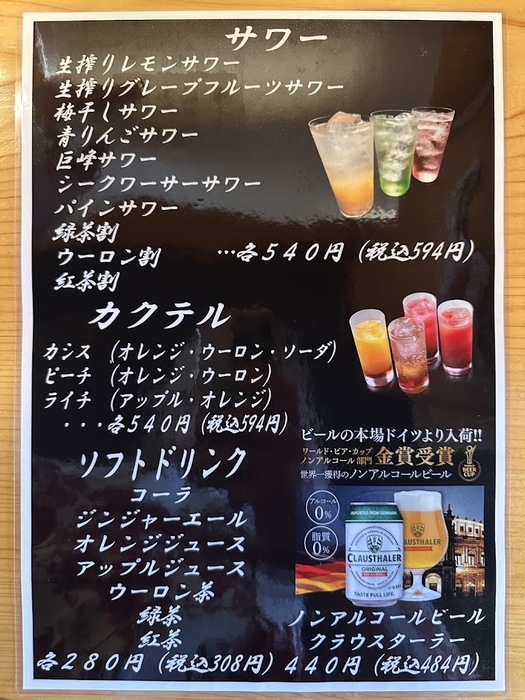 サワー
生搾りレモンサワー
生搾りグレープフルーツサワー
梅干しサワー
青りんごサワー
巨峰サワー
シークワーサーサワー
パインサワー
緑茶割
ウーロン割
紅茶割
…各５４０円 (税込594円)
カクテル
カシス (オレンジ・ウーロン・ソーダ)
ピーチ (オレンジ・ウーロン)
ライチ (アップル・オレンジ)
・・・各５４０円 (税込594円)
ソフトドリンク
コーラ
ジンジャーエール
オレンジジュース
アップルジュース
ウーロン茶
緑茶
紅茶
各２８０円 (税込308円)
ビールの本場ドイツより入荷!!
ワールド・ビア・カップ
ノンアルコール部門 金賞受賞
世界一獲得のノンアルコールビール
BEER
CUP
アルコール
0%
脂質
0%
CLAUSTHALER
ORIGINAL
TASTE FULL LIFE.
CLAUSTHALER
ノンアルコールビール
クラウスターラー
４４０円 (税込484円)